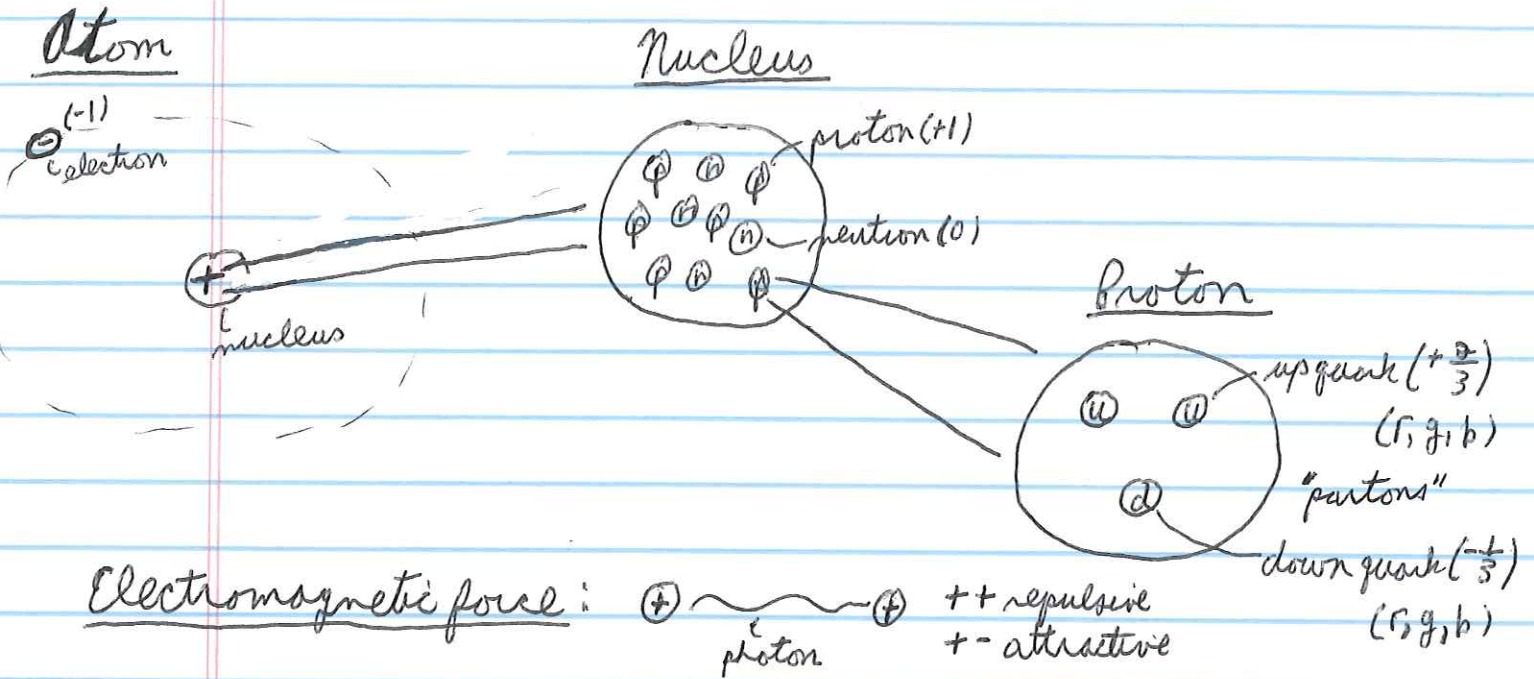 Atom
(-1)
-
electron
+
nucleus
Nucleus
p n p
p n p n
p n p
proton (+1)
neutron (0)
Proton
u u
d
up quark (+2/3)
(r, g, b)
"partons"
down quark (-1/3)
(r, g, b)
Electromagnetic force: + + ++ repulsive
photon +- attractive